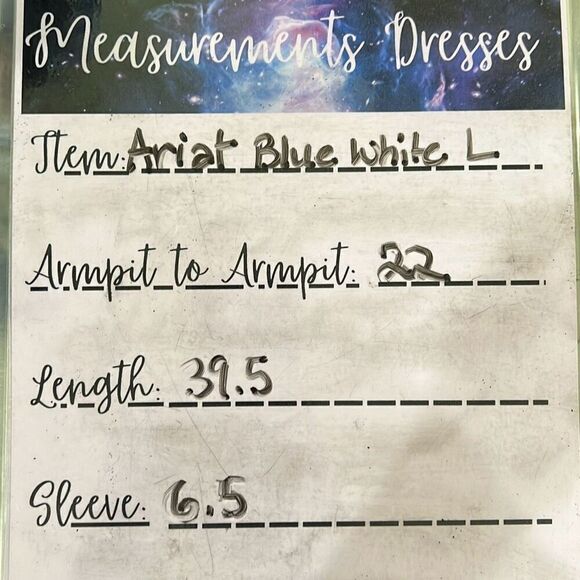 Measurements Dresses
Item: Ariat Blue White L
Armpit to Armpit: 22
Length: 39.5
Sleeve: 6.5